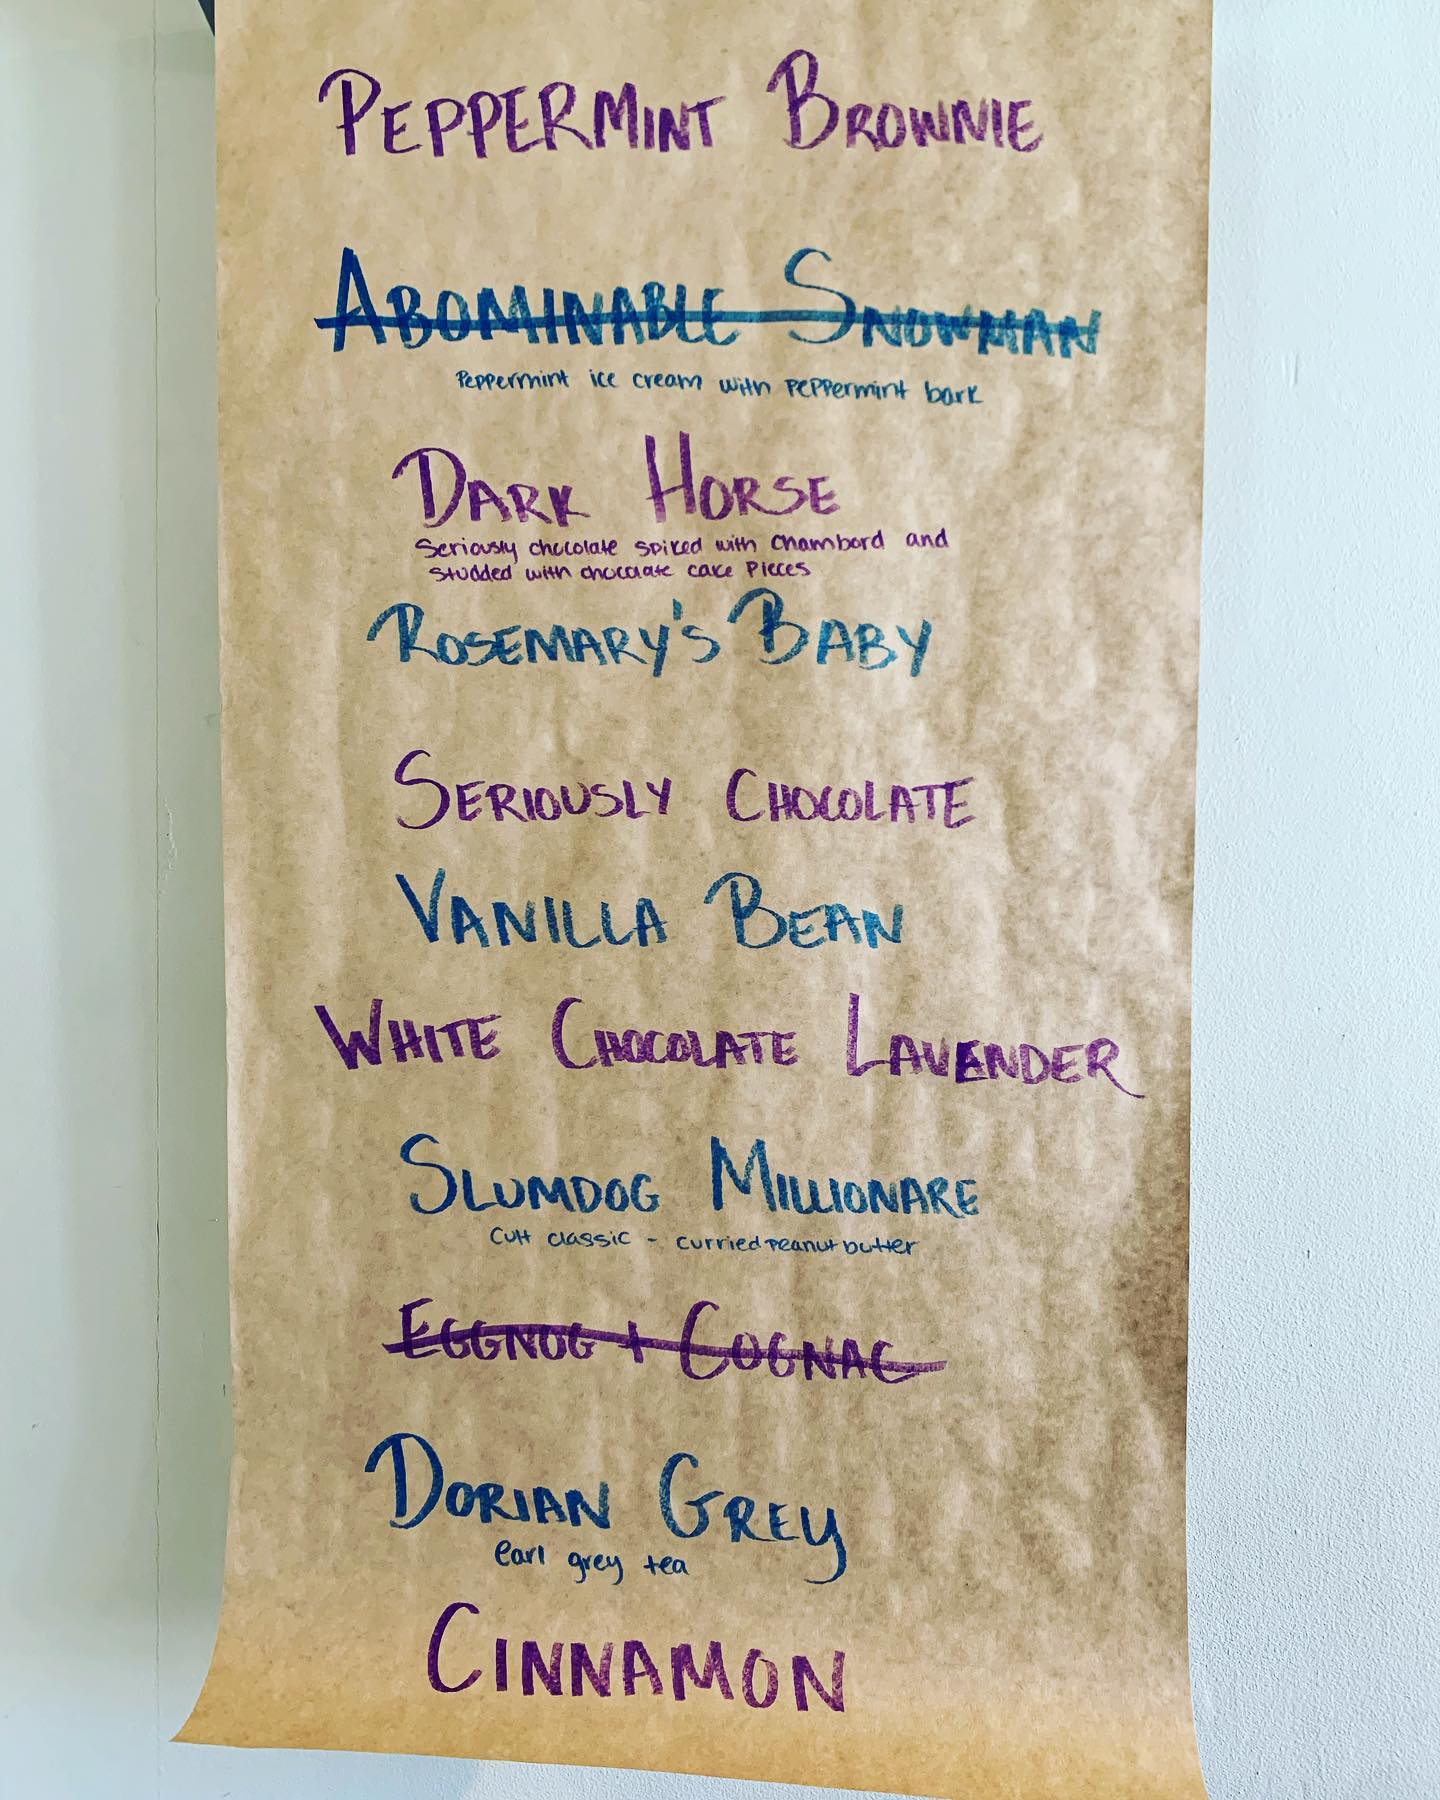 PEPPERMINT BROWNIE
ABOMINABLE SNOWMAN
Peppermint ice cream with peppermint bark
DARK HORSE
Seriously chocolate spiked with chambord and
studded with chocolate cake pieces
ROSEMARY'S BABY
SERIOUSLY CHOCOLATE
VANILLA BEAN
WHITE CHOCOLATE LAVENDER
SLUMDOG MILLIONARE
Cult classic - curried peanut butter
EGGNOG + COGNAC
DORIAN GREY
earl grey tea
CINNAMON